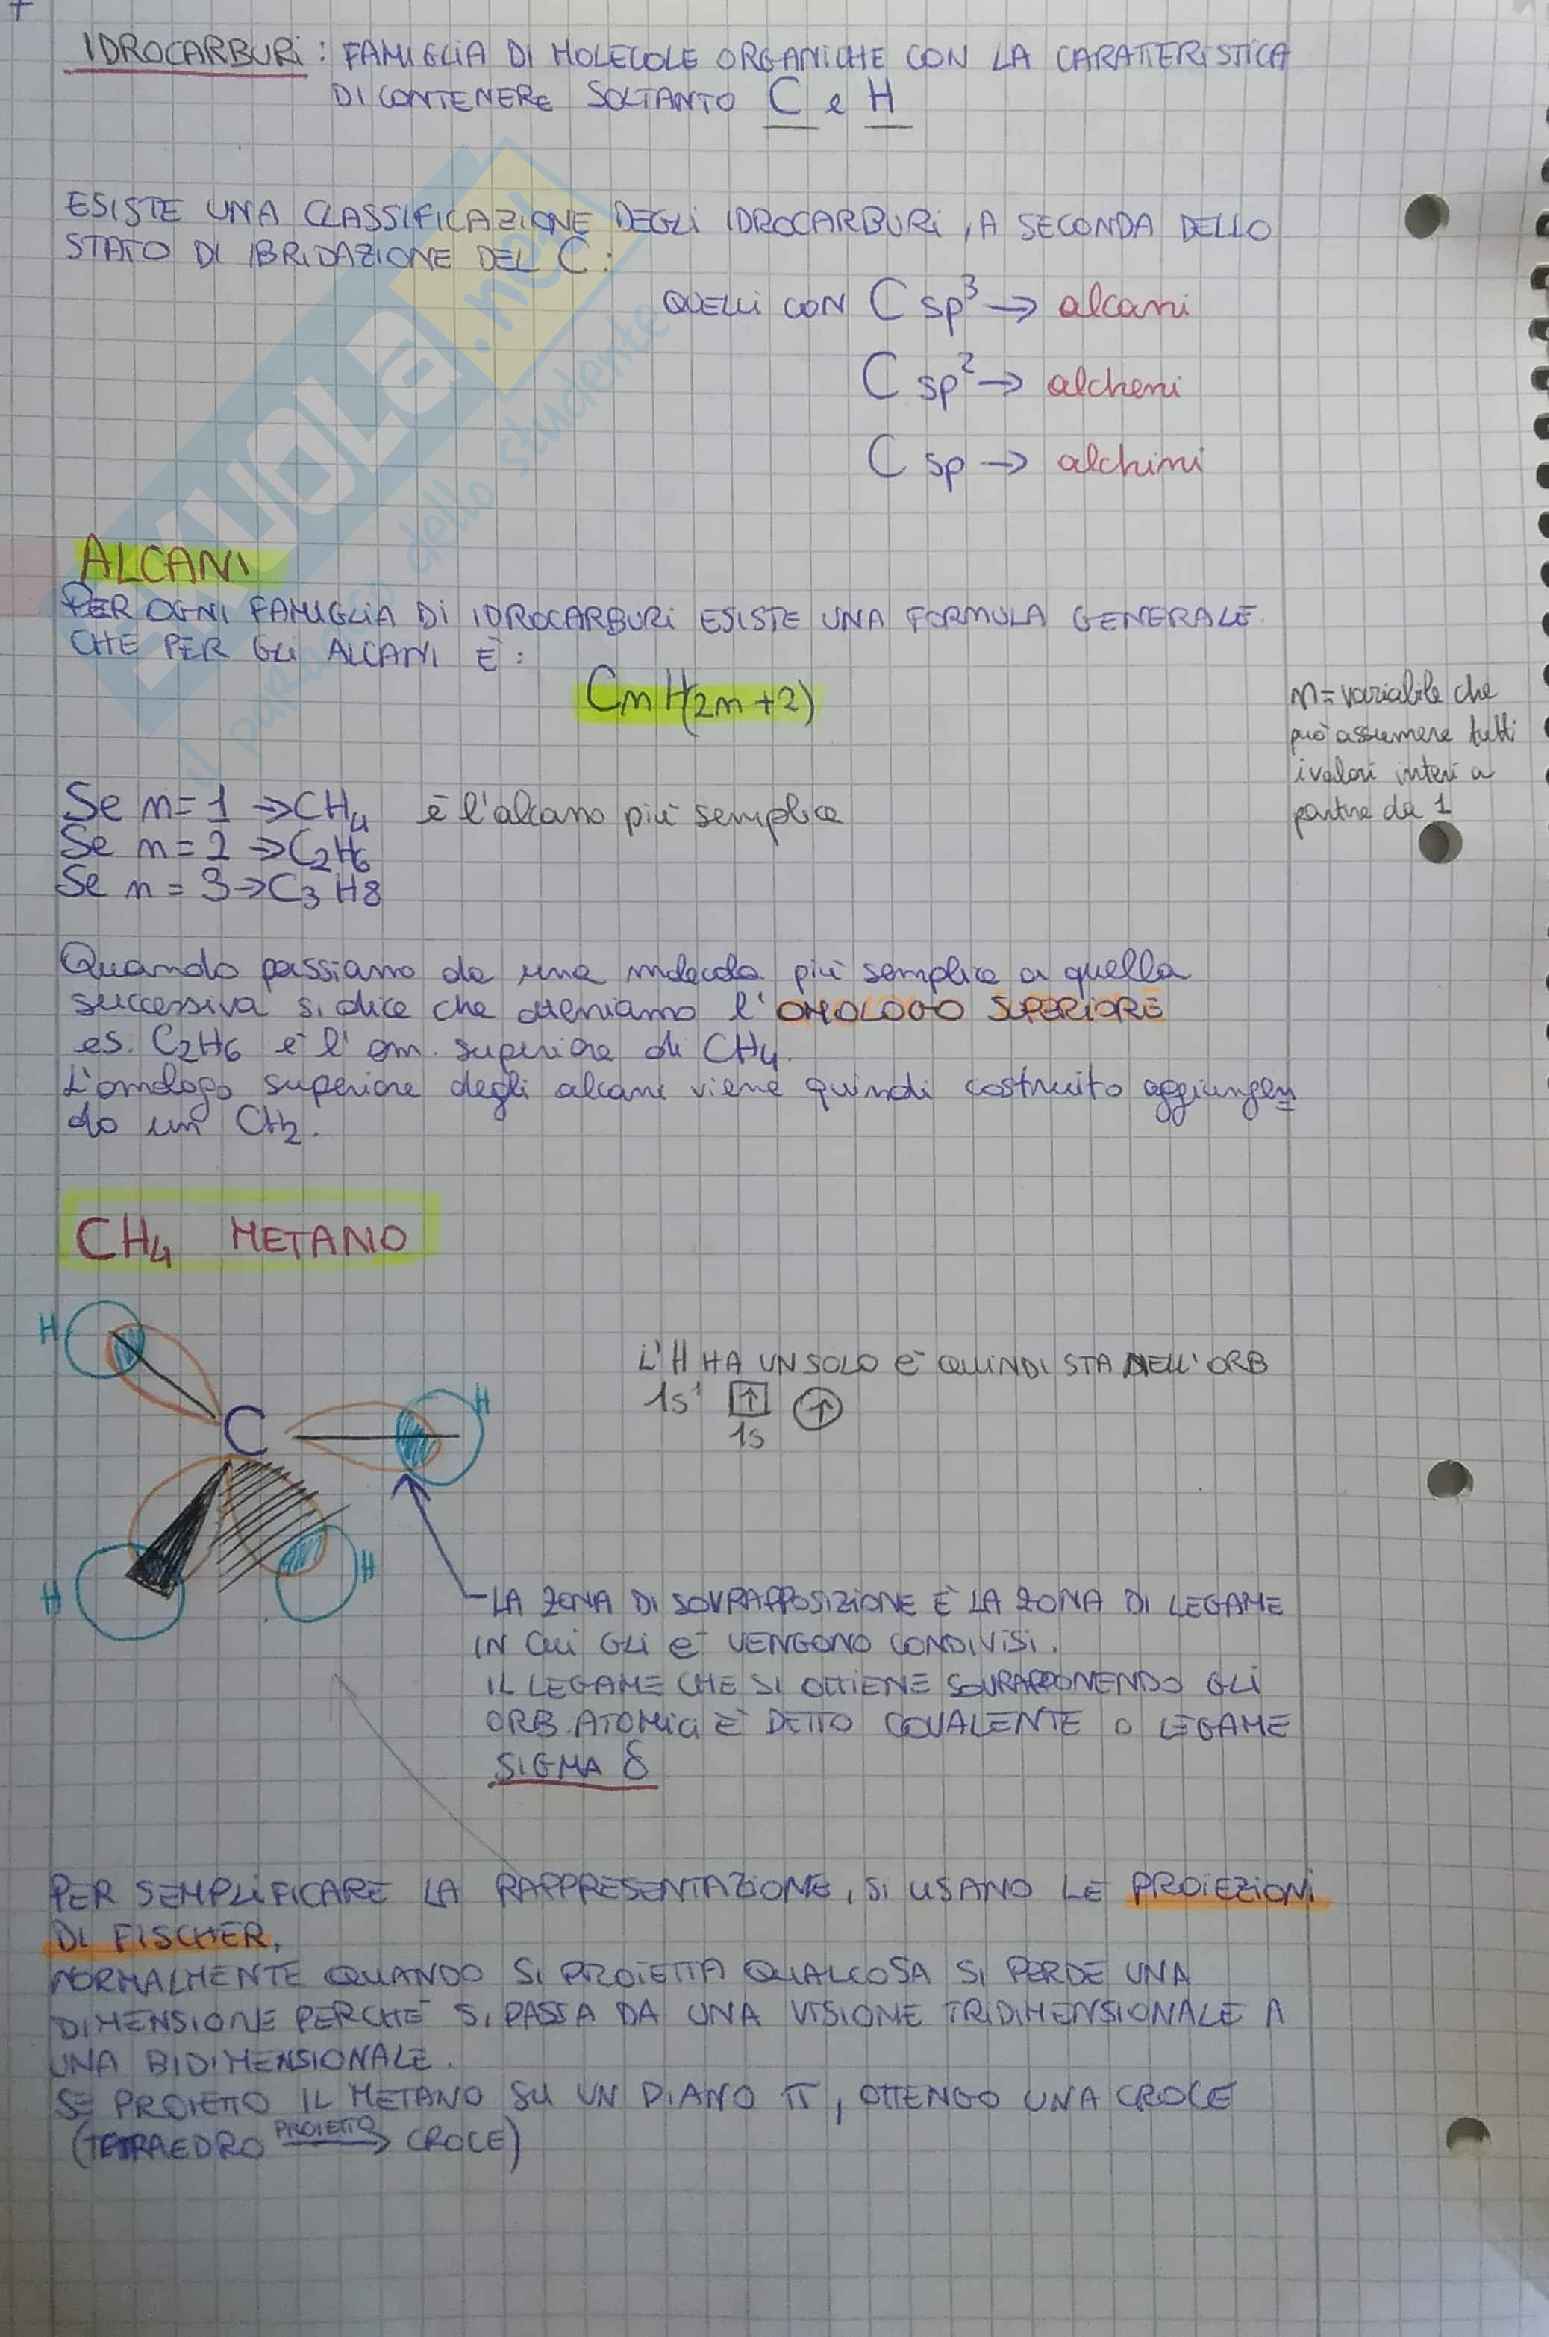 IDROCARBURI : FAMIGLIA DI MOLECOLE ORGANICHE CON LA CARATTERISTICA
DI CONTENERE SOLTANTO C e H
ESISTE UNA CLASSIFICAZIONE DEGLI IDROCARBURI, A SECONDA DELLO
STATO DI IBRIDAZIONE DEL C :
QUELLI CON C sp³ → alcani
C sp² → alcheni
C sp → alchini
ALCANI
PER OGNI FAMIGLIA DI IDROCARBURI ESISTE UNA FORMULA GENERALE.
CHE PER GLI ALCANI È :
CnH(2n+2)
n = variabile che
può assumere tutti
i valori interi a
partire da 1
Se n = 1 → CH₄ è l'alcano più semplice
Se n = 2 → C₂H₆
Se n = 3 → C₃H8
Quando passiamo da una molecola più semplice a quella
successiva si dice che otteniamo l'OMOLOGO SUPERIORE
es. C₂H₆ è l'om. superiore di CH₄.
L'omologo superiore degli alcani viene quindi costruito aggiungen
do un CH₂.
CH₄ METANO
H
H
C
H
H
L'H HA UN SOLO e⁻ QUINDI STA NELL'ORB
1s¹ ↑ ↑
1s
- LA ZONA DI SOVRAPPOSIZIONE È LA ZONA DI LEGAME
IN CUI GLI e⁻ VENGONO CONDIVISI.
IL LEGAME CHE SI OTTIENE SOVRAPPONENDO GLI
ORB. ATOMICI È DETTO COVALENTE O LEGAME
SIGMA δ
PER SEMPLIFICARE LA RAPPRESENTAZIONE, SI USANO LE PROIEZIONI
DI FISCHER.
NORMALMENTE QUANDO SI PROIETTA QUALCOSA SI PERDE UNA
DIMENSIONE PERCHÉ SI PASSA DA UNA VISIONE TRIDIMENSIONALE A
UNA BIDIMENSIONALE.
SE PROIETTO IL METANO SU UN PIANO π, OTTENGO UNA CROCE
(TETRAEDRO PROIETTO → CROCE)